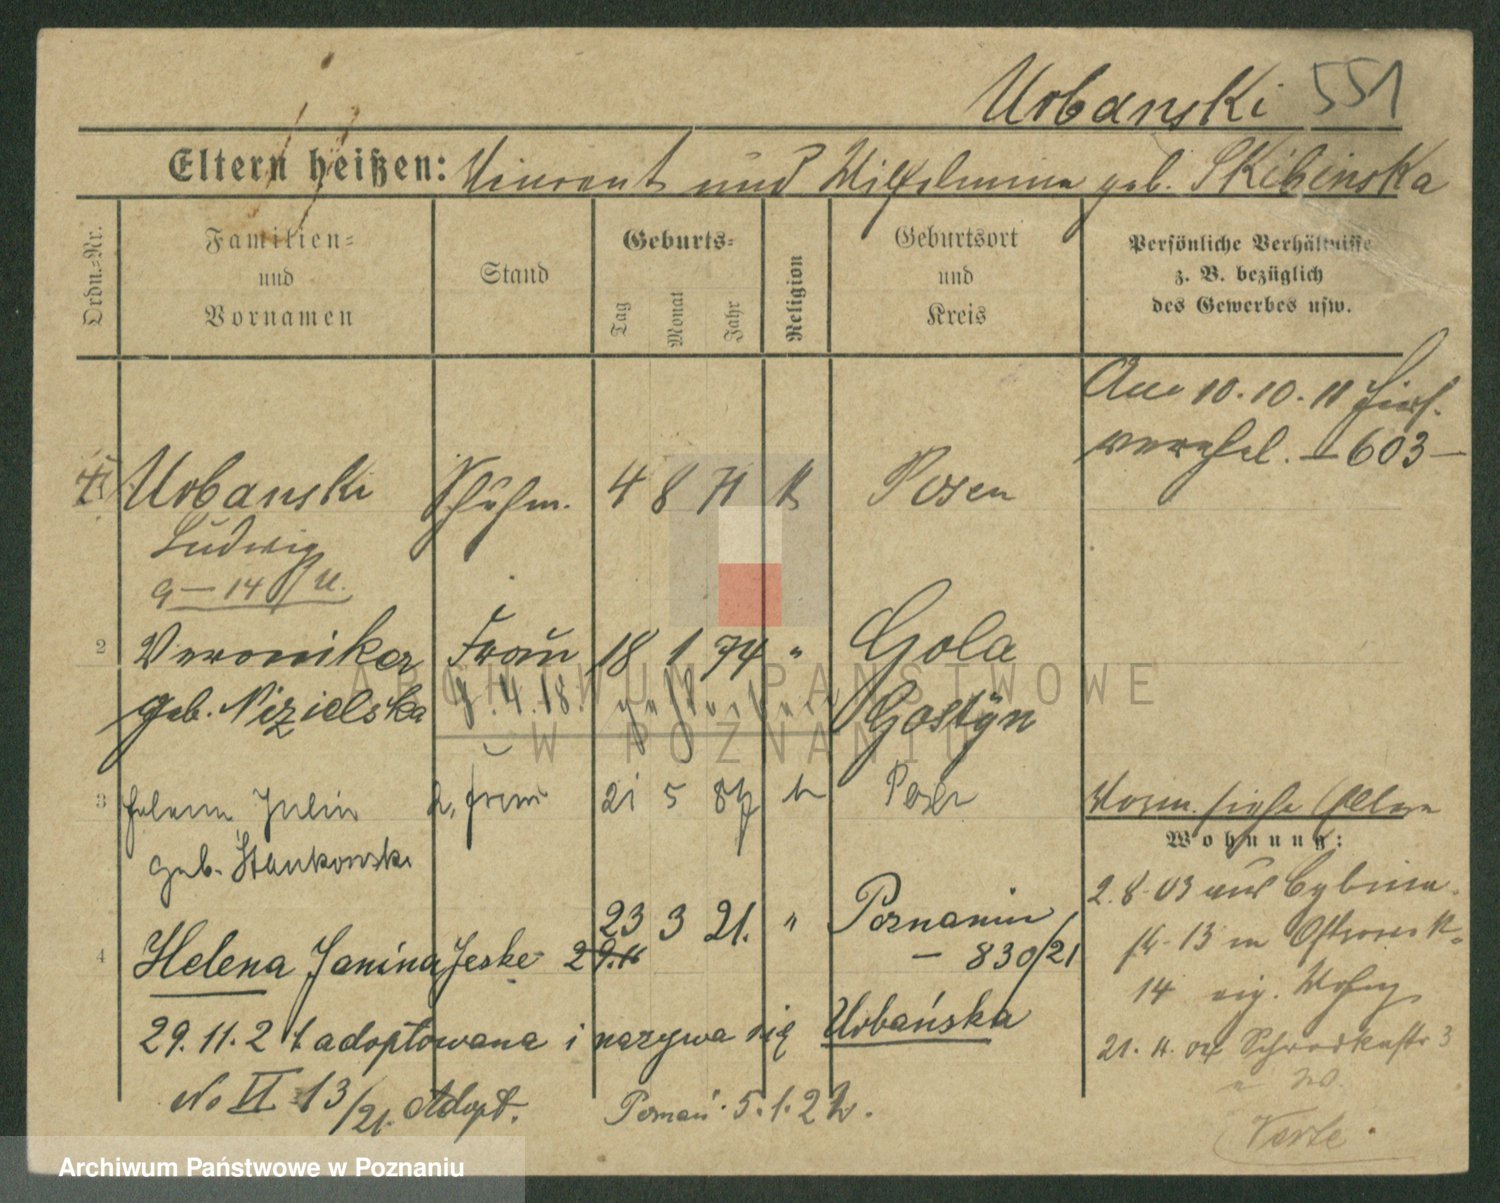 Urbanski 551
Eltern heißen: Vincent und Wilhelmina geb. Skibinska
Ordn.=Nr.
Familien= und Vornamen
Stand
Geburts=
Tag Monat Jahr
Religion
Geburtsort und Kreis
Persönliche Verhältnisse z. B. bezüglich des Gewerbes usw.
Am 10.10.11
603
Urbanski Schuhm. 4 8 71 k Posen
Ludwig
9 - 14
2 Veronika Frau 18 1 74 " Gola
geb. Nizielska 4.18. gestorben Gostÿn
3 Helena Julia 2. Frau 21 5 Posen
geb. Stankowski
Wohnung:
23 3 21. " Poznaniu
4 Helena Janina Jeske - 830/21
29.11.21 adoptowana i nazywa się Urbańska
No II 13/21. Adopt. Poznań 5.1.22.
Worm. siehe
2.8.03 aus Cybina
13
14 eig. Wohng.
21. 4. 04 Schrodkastr 3
Verte
ARCHIWUM PAŃSTWOWE
W POZNANIU
Archiwum Państwowe w Poznaniu